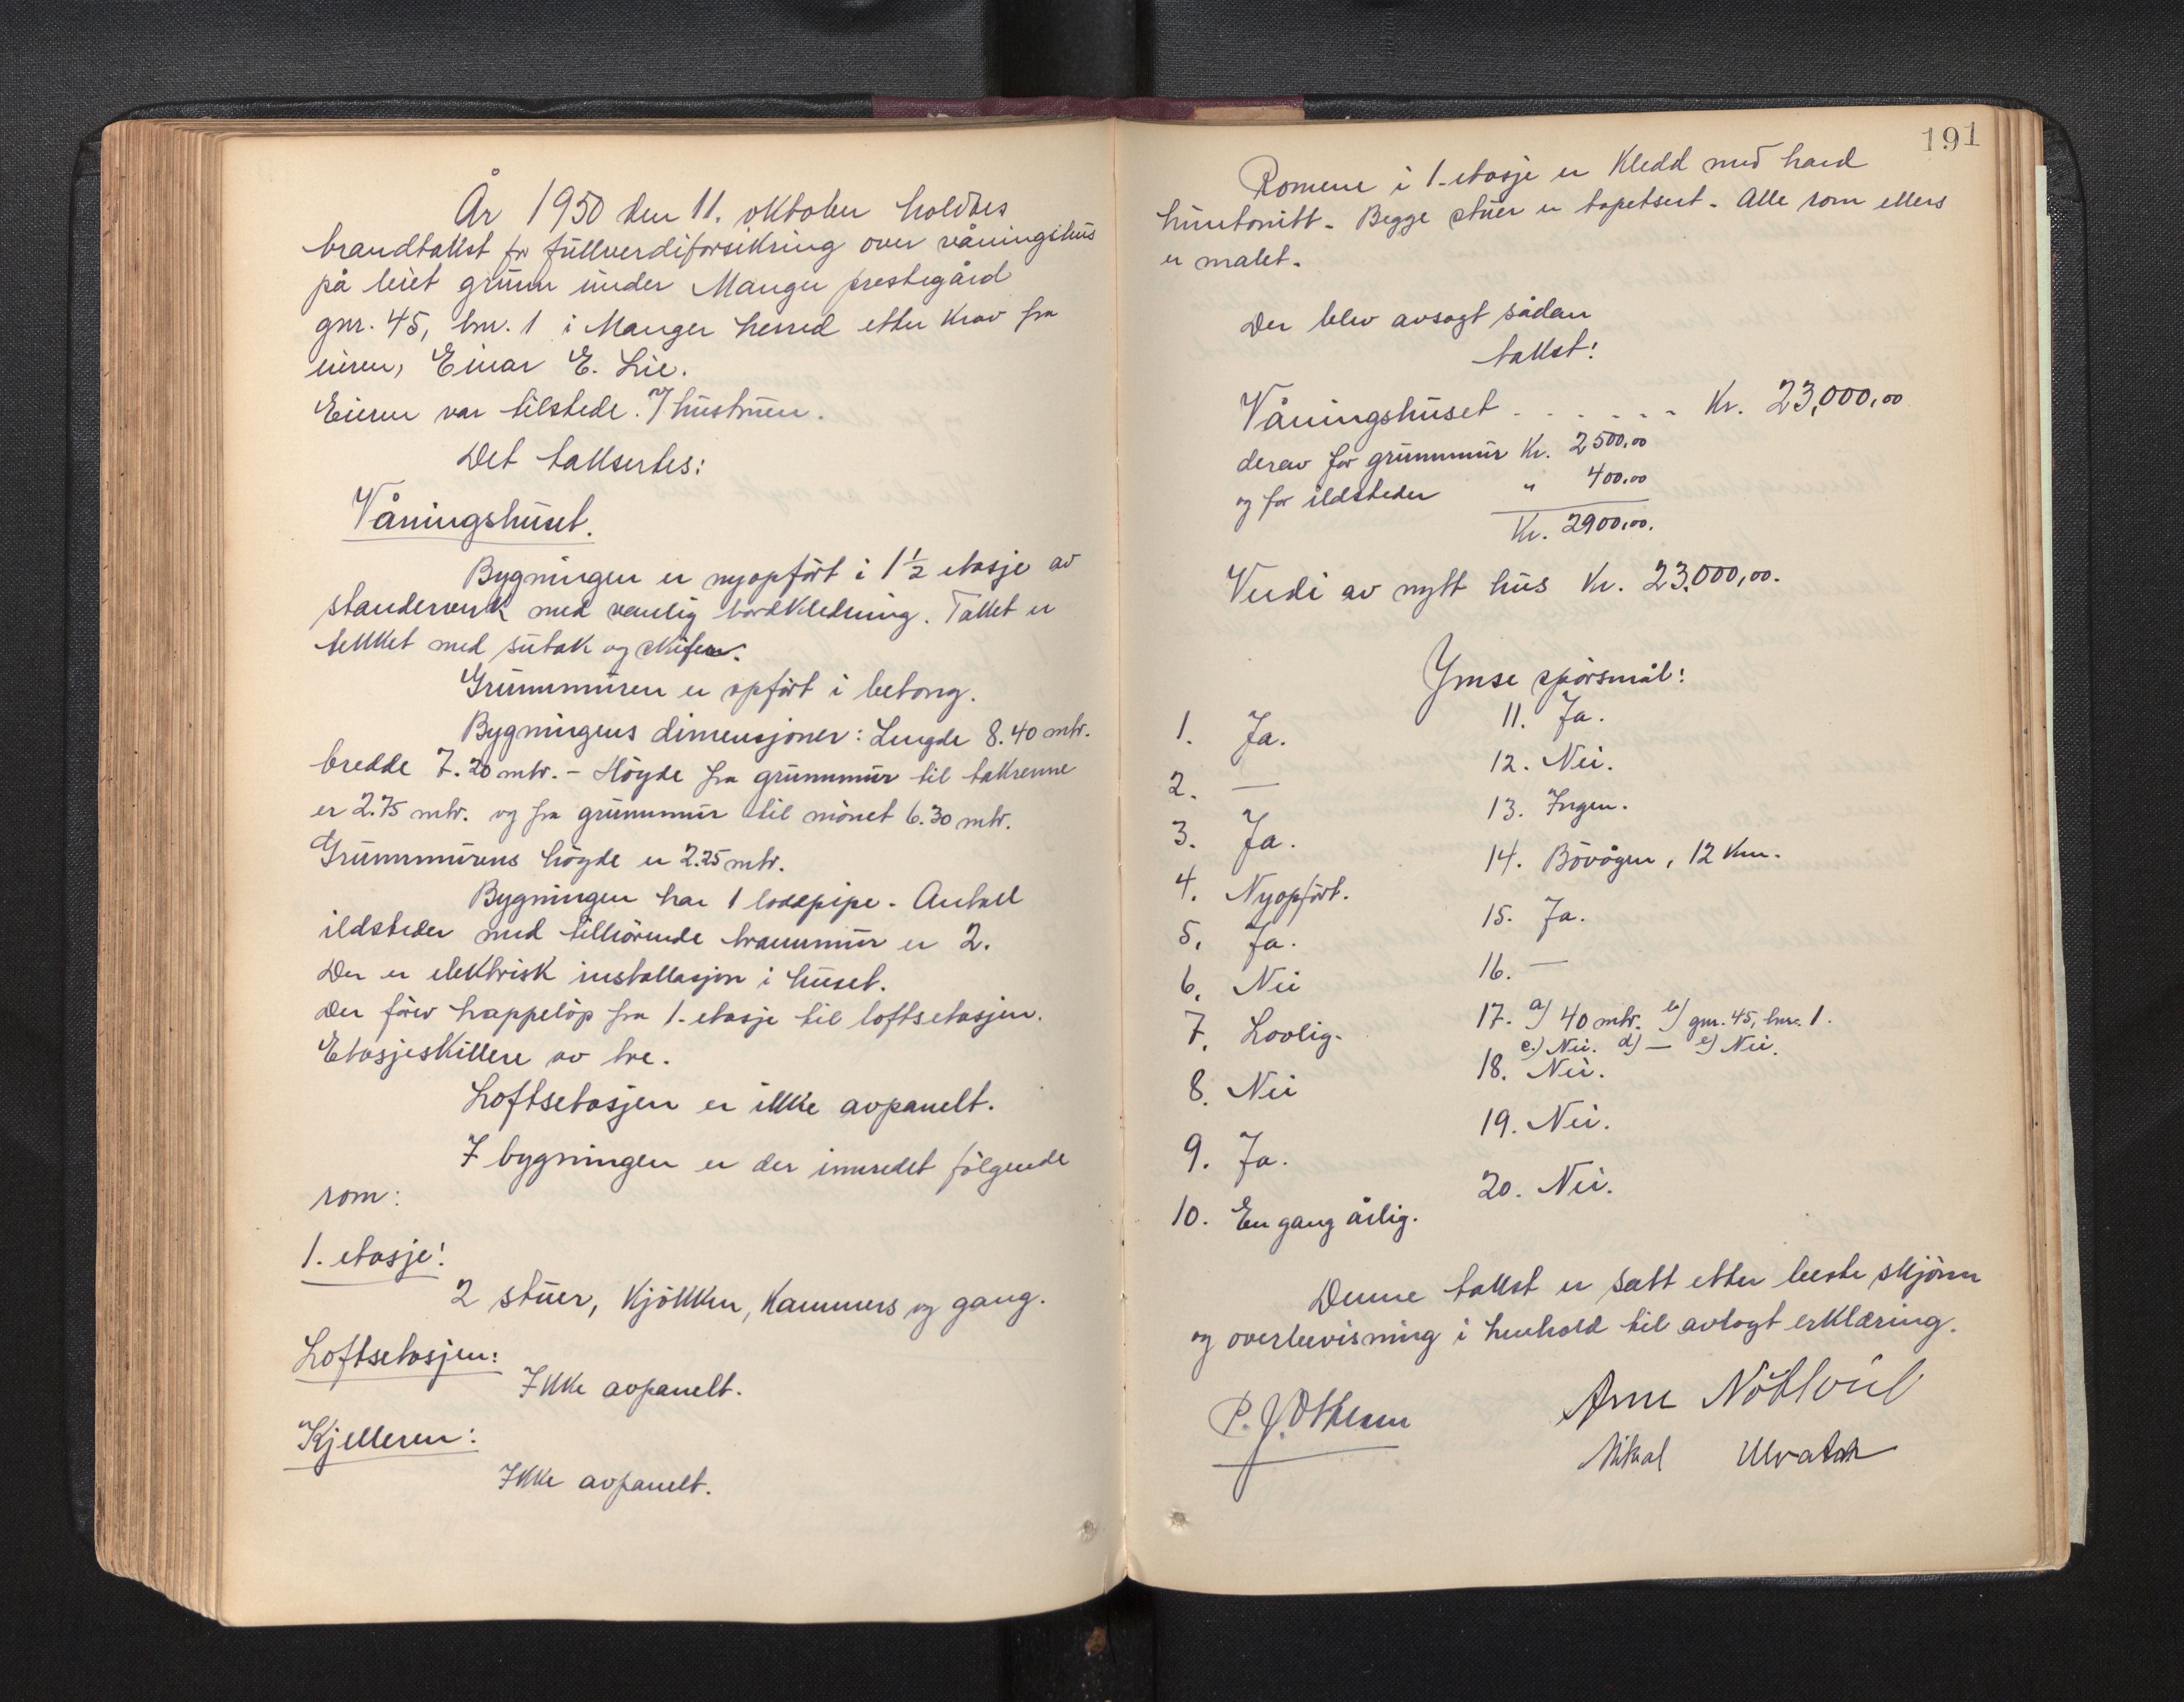 År 1950 den 11. oktober holdtes
brandtakst for fullverdiforsikring over våningshus
på leiet grunn under Manger prestegård
gnr. 45, bnr. 1 i Manger herred etter krav fra
eieren, Einar E. Lie.
Eieren var tilstede. / hustruen.
Det taksertes:
Våningshuset.
Bygningen er nyopført i 1½ etasje av
standerverk med vanlig bordkledning. Taket er
tekket med sutak og skifer.
Grunnmuren er opført i betong.
Bygningens dimensjoner: Lengde 8.40 mtr.
bredde 7.20 mtr. - Høyde fra grunnmur til takrenne
er 2.75 mtr. og fra grunnmur til mønet 6.30 mtr.
Grunnmurens høyde er 2.25 mtr.
Bygningen har 1 loddpipe. Antall
ildsteder med tilhørende brannmur er 2.
Der er elektrisk installasjon i huset.
Der fører trappeløp fra 1. etasje til loftsetasjen.
Etasjeskillere av tre.
Loftsetasjen er ikke avpanelt.
I bygningen er der innredet følgende
rom:
1. etasje:
2 stuer, kjøkken, kammers og gang.
Loftsetasjen:
Ikke avpanelt.
Kjelleren:
Ikke avpanelt.
191
Romene i 1. etasje er kledd med hard
huntonitt. Begge stuer er tapetsert. Alle rom ellers
er malet.
Der blev avsagt sådan
takst:
Våningshuset . . . . . . Kr. 23,000,00
derav for grunnmur Kr. 2500,00
og for ildsteder " 400,00
Kr. 2900,00.
Verdi av nytt hus Kr. 23.000,00.
Ymse spørsmål:
1. Ja.
2. —
3. Ja.
4. Nyopført.
5. Ja.
6. Nei
7. Lovlig.
8. Nei
9. Ja.
10. En gang årlig.
11. Ja.
12. Nei.
13. Ingen.
14. Bøvågen, 12 km.
15. Ja.
16. —
17. a) 40 mtr. b) gnr. 45, bnr. 1.
c.) Nei. d) — e) Nei.
18. Nei.
19. Nei.
20. Nei.
Denne takst er satt etter beste skjønn
og overbevisning i henhold til avlagt erklæring.
P. J.
Arne
Mikal